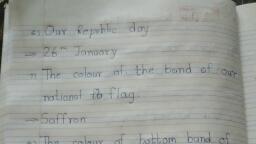 6) Our Republic day
→ 26th January
7) The colour of the band of our
national flag.
→ Saffron
8) The colour of bottom band of